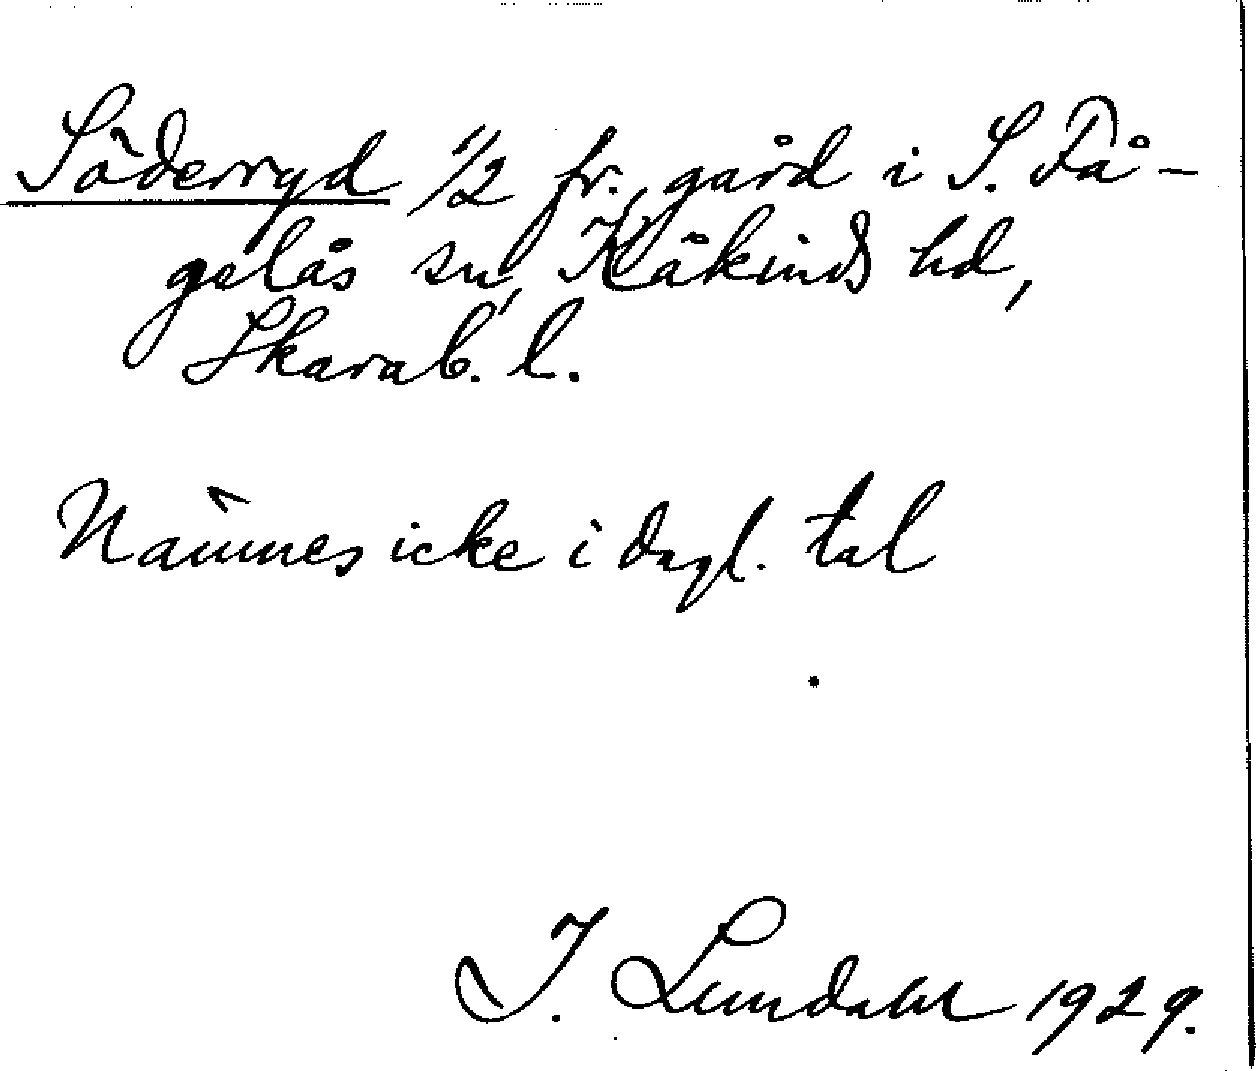 Söderryd 1/2 fr., gård i S. Få-
gelås sn, Kåkinds hd,
Skarab. l.
Nämnes icke i dagl. tal
J. Lundahl 1929.